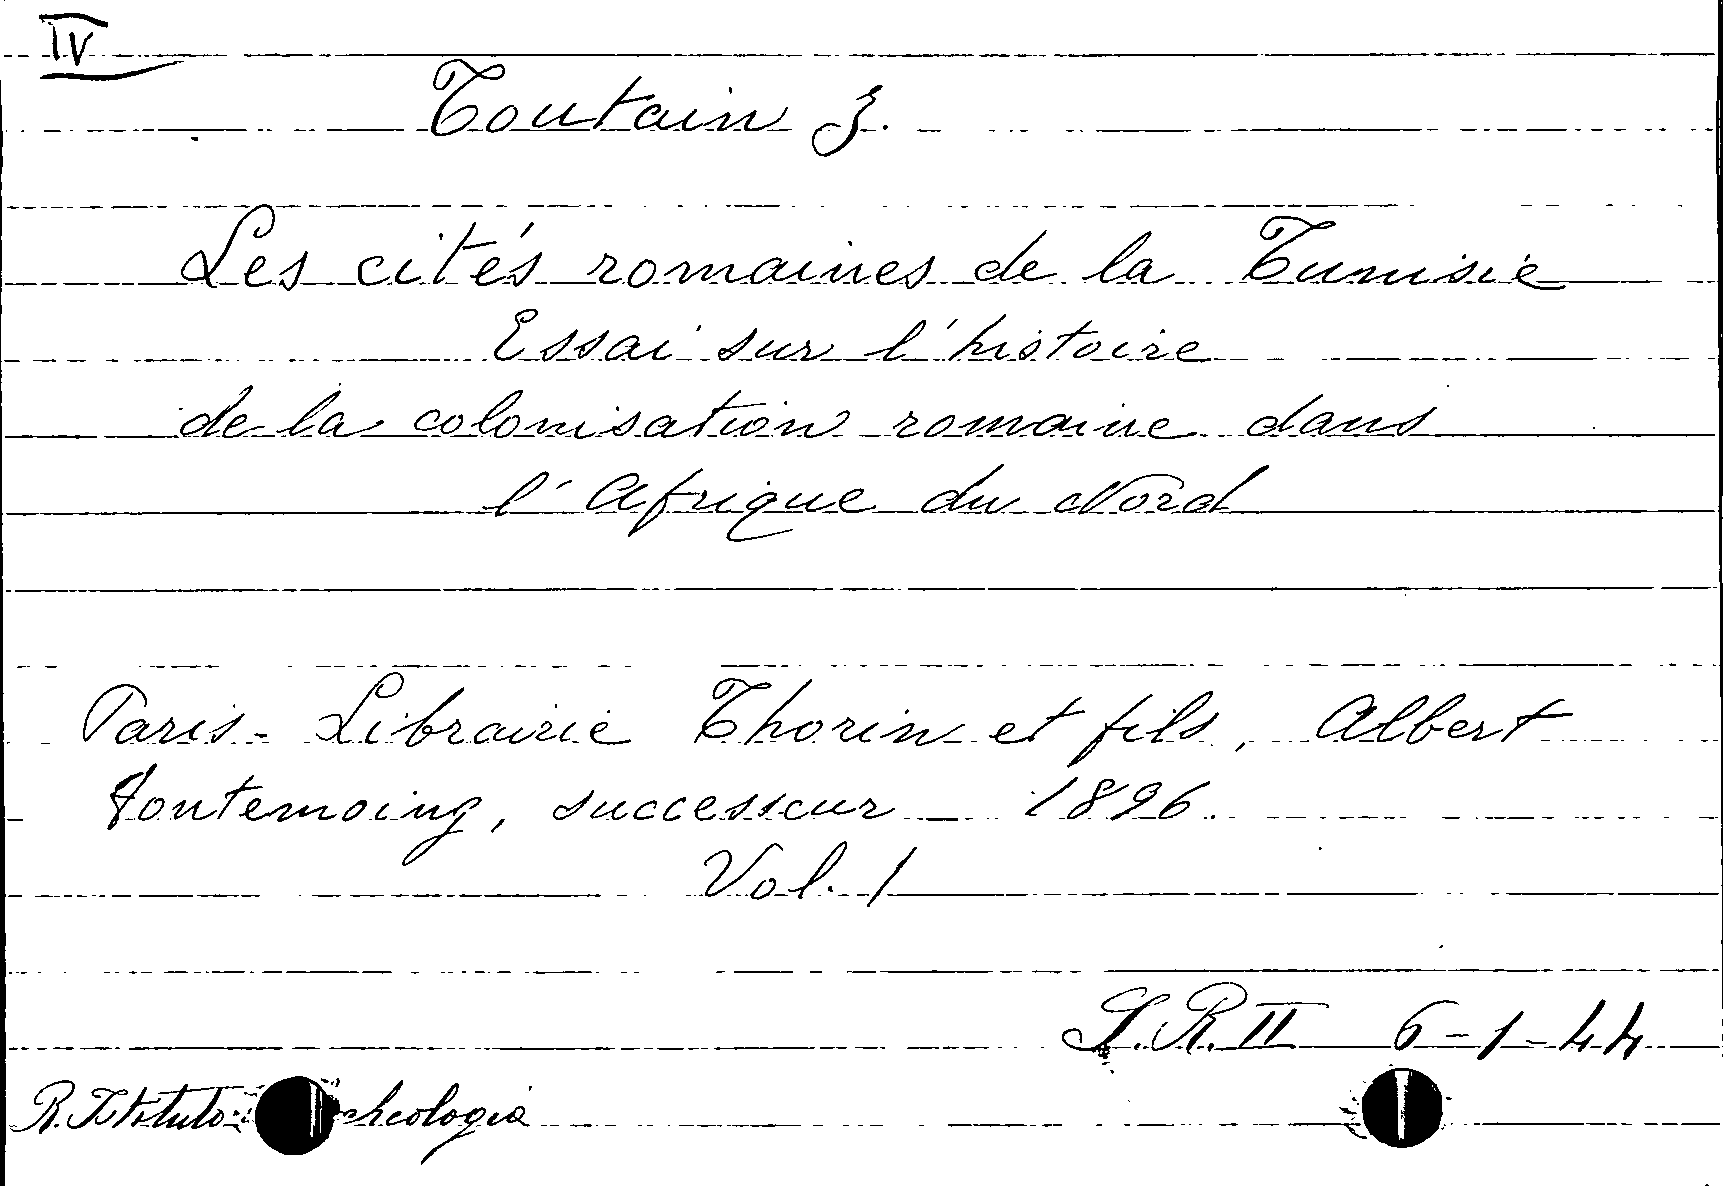 IV
Toutain J.
Les cités romaines de la Tunisie
Essai sur l'histoire
de la colonisation romaine dans
l'Afrique du Nord
Paris - Librairie Thorin et fils, Albert
Fontemoing, successeur 1896.
Vol. 1
S.R. II 6-1-44
R. Istituto cheologia